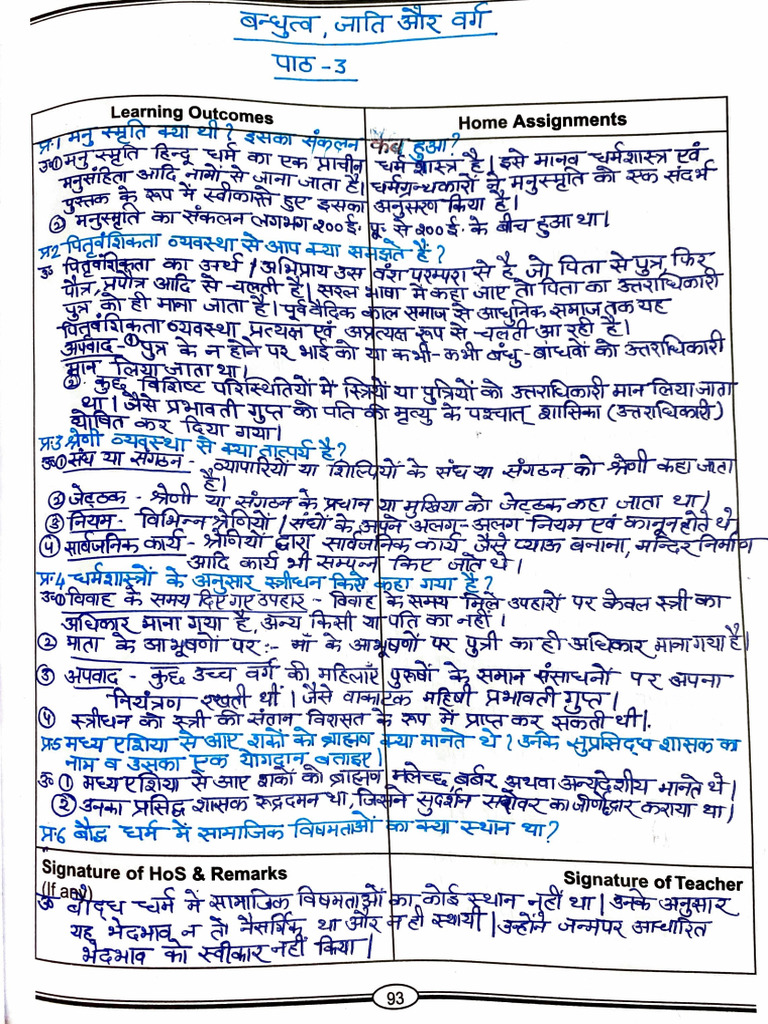 बन्धुत्व, जाति और वर्ग
पाठ -3
Learning Outcomes
Home Assignments
प्र॰1 मनु स्मृति क्या थी? इसका संकलन कब हुआ?
उ॰① मनु स्मृति हिन्दू धर्म का एक प्राचीन धर्म शास्त्र है। इसे मानव धर्मशास्त्र एवं
मनुसंहिता आदि नामों से जाना जाता है। धर्मग्रन्थकारों ने मनुस्मृति को एक संदर्भ
पुस्तक के रूप में स्वीकारते हुए इसका अनुसरण किया है।
② मनुस्मृति का संकलन लगभग २०० ई॰ पू॰ से २०० ई॰ के बीच हुआ था।
प्र॰2 पितृवंशिकता व्यवस्था से आप क्या समझते हैं?
उ॰ पितृवंशिकता का अर्थ / अभिप्राय उस वंश परम्परा से है जो पिता से पुत्र, फिर
पौत्र, प्रपौत्र आदि से चलती है। सरल भाषा में कहा जाए तो पिता का उत्तराधिकारी
पुत्र को ही माना जाता है। पूर्व वैदिक काल समाज से आधुनिक समाज तक यह
पितृवंशिकता व्यवस्था प्रत्यक्ष एवं अप्रत्यक्ष रूप से चलती आ रही है।
अपवाद - ① पुत्र के न होने पर भाई को या कभी-कभी बंधु-बांधवों को उत्तराधिकारी
मान लिया जाता था।
② कुछ विशिष्ट परिस्थितियों में स्त्रियों या पुत्रियों को उत्तराधिकारी मान लिया जाता
था। जैसे प्रभावती गुप्त को पति की मृत्यु के पश्चात् शासिका (उत्तराधिकारी)
घोषित कर दिया गया।
प्र॰3 श्रेणी व्यवस्था से क्या तात्पर्य है?
उ॰① संघ या संगठन - व्यापारियों या शिल्पियों के संघ या संगठन को श्रेणी कहा जाता
है।
② जेट्ठक - श्रेणी या संगठन के प्रधान या मुखिया को जेट्ठक कहा जाता था।
③ नियम - विभिन्न श्रेणियों / संघों के अपने अलग-अलग नियम एवं कानून होते थे
④ सार्वजनिक कार्य - श्रेणियों द्वारा सार्वजनिक कार्य जैसे प्याऊ बनाना, मन्दिर निर्माण
आदि कार्य भी सम्पन्न किए जाते थे।
प्र॰4 धर्मशास्त्रों के अनुसार स्त्रीधन किसे कहा गया है?
उ॰① विवाह के समय दिए गए उपहार - विवाह के समय मिले उपहारों पर केवल स्त्री का
अधिकार माना गया है, अन्य किसी या पति का नहीं।
② माता के आभूषणों पर :- माँ के आभूषणों पर पुत्री का ही अधिकार माना गया है।
③ अपवाद - कुछ उच्च वर्ग की महिलाएँ पुरुषों के समान संसाधनों पर अपना
नियंत्रण रखती थीं। जैसे वाकाटक महिषी प्रभावती गुप्त।
④ स्त्रीधन को स्त्री की संतान विरासत के रूप में प्राप्त कर सकती थी।
प्र॰5 मध्य एशिया से आए शकों को ब्राह्मण क्या मानते थे? उनके सुप्रसिद्ध शासक का
नाम व उसका एक योगदान बताइए।
उ॰ ① मध्य एशिया से आए शकों को ब्राह्मण मलेच्छ, बर्बर अथवा अन्यदेशीय मानते थे।
② उनका प्रसिद्ध शासक रूद्रदमन था, जिसने सुदर्शन सरोवर का जीर्णोद्धार कराया था।
प्र॰6 बौद्ध धर्म में सामाजिक विषमताओं का क्या स्थान था?
Signature of HoS & Remarks
(If any)
Signature of Teacher
उ॰ बौद्ध धर्म में सामाजिक विषमताओं का कोई स्थान नहीं था। उनके अनुसार
यह भेदभाव न तो नैसर्गिक था और न ही स्थायी। उन्होंने जन्म पर आधारित
भेदभाव को स्वीकार नहीं किया।
93